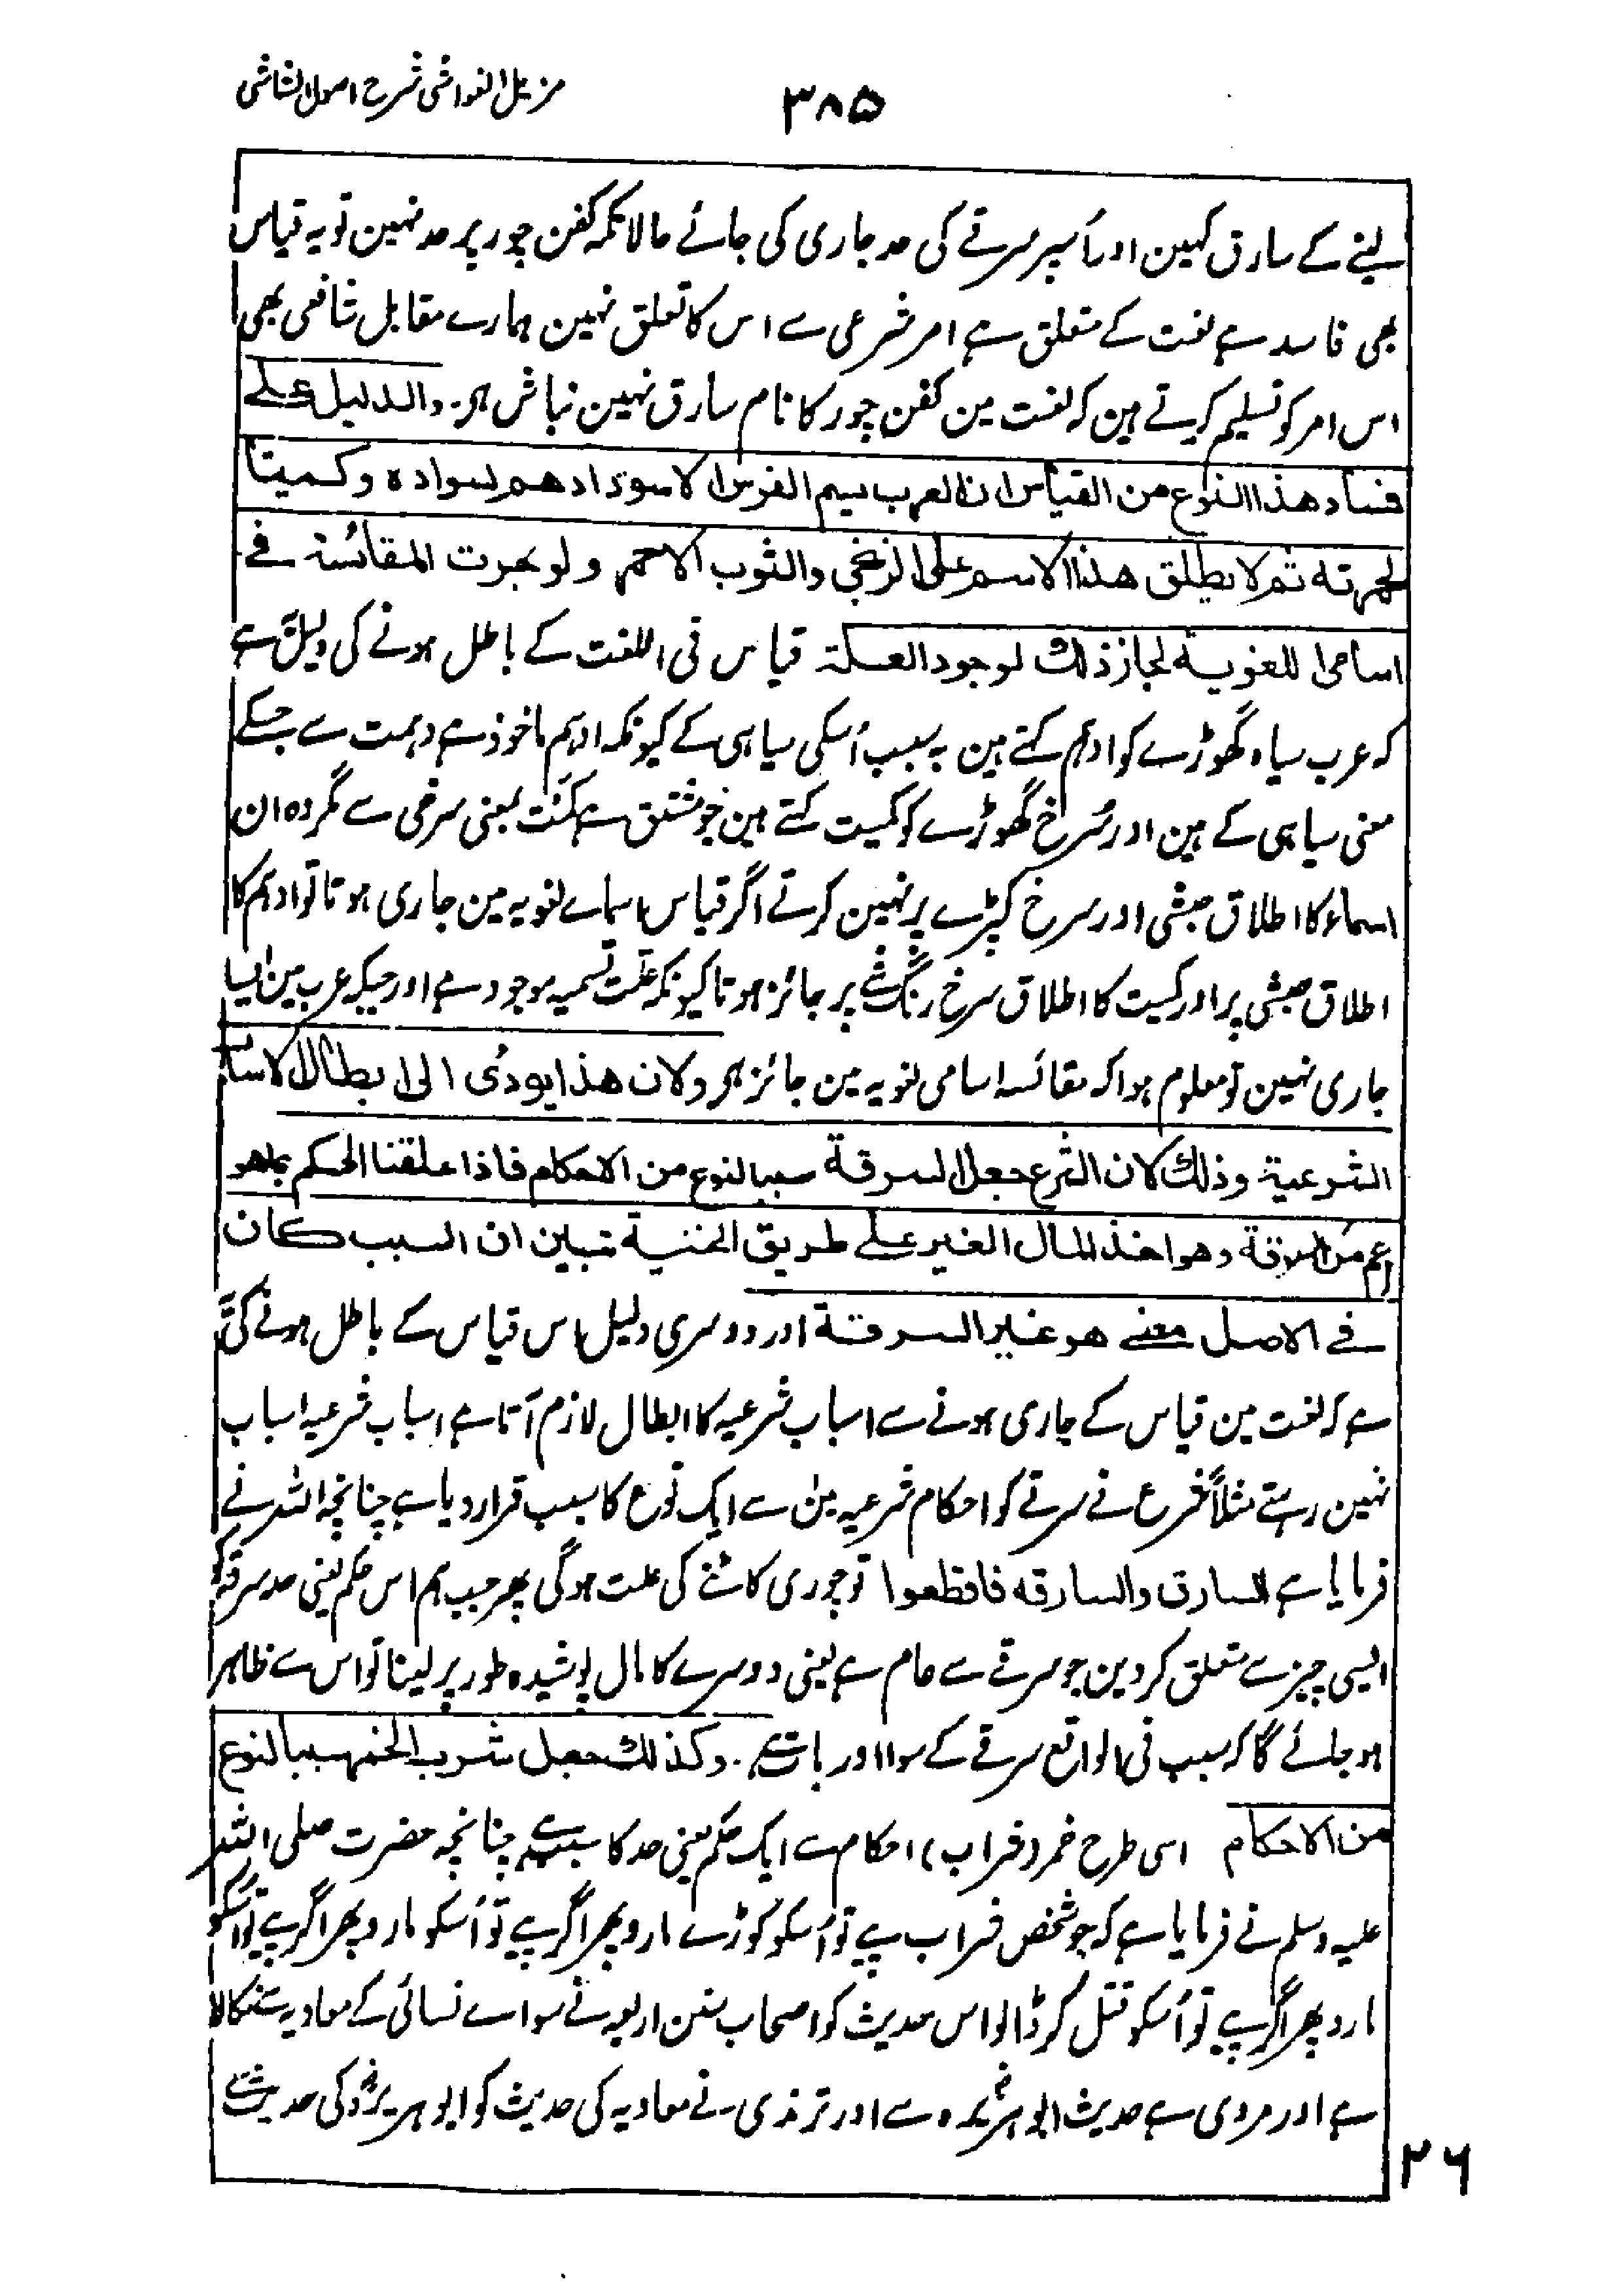 مزیل الغواشی شرح اصول الشاشی
۳۸۵
لینے کے سارق کہین اور اُسپر سرقے کی حد جاری کی جائے حالانکہ کفن چور پر حد نہین تو یہ قیاس
بھی فاسد ہے لغت کے متعلق ہے امر شرعی سے اس کا تعلق نہین ہمارے مقابل شافعی بھی
اس امر کو تسلیم کرتے ہین کہ لغت مین کفن چور کا نام سارق نہین نباش ہے۔ والدلیل علے
فساد هذا النوع من القیاس ان العرب یسم الفرس الاسود ادهم لسواده وکمیتا
لحمرته ثم لا یطلق هذا الاسم علی الزنجی والثوب الاحمر ولو جرت المقائسة فے
اسامی اللغویة لجاز ذلك لوجود العلة قیاس فی اللغت کے باطل ہونے کی دلیل یہ ہے
کہ عرب سیاہ گھوڑے کو ادہم کہتے ہین بہ سبب اُسکی سیاہی کے کیونکہ ادہم ماخوذ ہے دہمت سے جسکے
معنی سیاہی کے ہین اور سُرخ گھوڑے کو کمیت کہتے ہین جو مشتق ہے کمت بمعنی سرخی سے مگر وہ ان
اسماء کا اطلاق حبشی اور سرخ کپڑے پر نہین کرتے اگر قیاس اسماے لغویہ مین جاری ہوتا تو ادہم کا
اطلاق حبشی پر اور کمیت کا اطلاق سرخ رنگ شے پر جائز ہوتا کیونکہ علت تسمیہ موجود ہے اور جبکہ عرب مین ایسا
جاری نہین تو معلوم ہوا کہ مقائسہ اسامی لغویہ مین جائز ہے ولان هذا یودی الی ابطال الاسباب
الشرعیة وذلك لان الشرع جعل السرقة سببا لنوع من الاحکام فاذا علقنا الحکم بما هو
اعم من السرقة وهو اخذ المال الغیر علے طریق الخفیة تبین ان السبب کان
فے الاصل معنے هو غیر السرقة اور دوسری دلیل اس قیاس کے باطل ہونے کی یہ
ہے کہ لغت مین قیاس کے جاری ہونے سے اسباب شرعیہ کا ابطال لازم آتا ہے اسباب شرعیہ اسباب
نہین رہتے مثلاً شرع نے سرقے کو احکام شرعیہ مین سے ایک نوع کا سبب قرار دیا ہے چنانچہ اللہ نے
فرمایا ہے السارق والسارقه فاقطعوا تو چوری کاٹنے کی علت ہوگی پھر جب ہم اس حکم یعنی حد سرقہ کو
ایسی چیز سے متعلق کر دین جو سرقے سے عام ہے یعنی دوسرے کا مال پوشیدہ طور پر لینا تو اس سے ظاہر
ہو جائے گا کہ سبب فی الواقع سرقے کے سوا اور بات ہے۔ وکذلك جعل شرب الخمر سببا لنوع
من الاحکام اسی طرح خمر (شراب) احکام سے ایک حکم یعنی حد کا سبب ہے چنانچہ حضرت صلی اللہ
علیہ وسلم نے فرمایا ہے کہ جو شخص شراب پیے تو اُسکو کوڑے مارو پھر اگر پیے تو اُسکو مارو پھر اگر پیے تو اُسکو
مارو پھر اگر پیے تو اُسکو قتل کر ڈالو اس حدیث کو اصحاب سنن اربعہ نے سواے نسائی کے معاویہ سے نکالا
ہے اور مروی ہے حدیث ابو ہریرہ سے اور ترمذی نے معاویہ کی حدیث کو ابو ہریرہ کی حدیث سے
۲۶